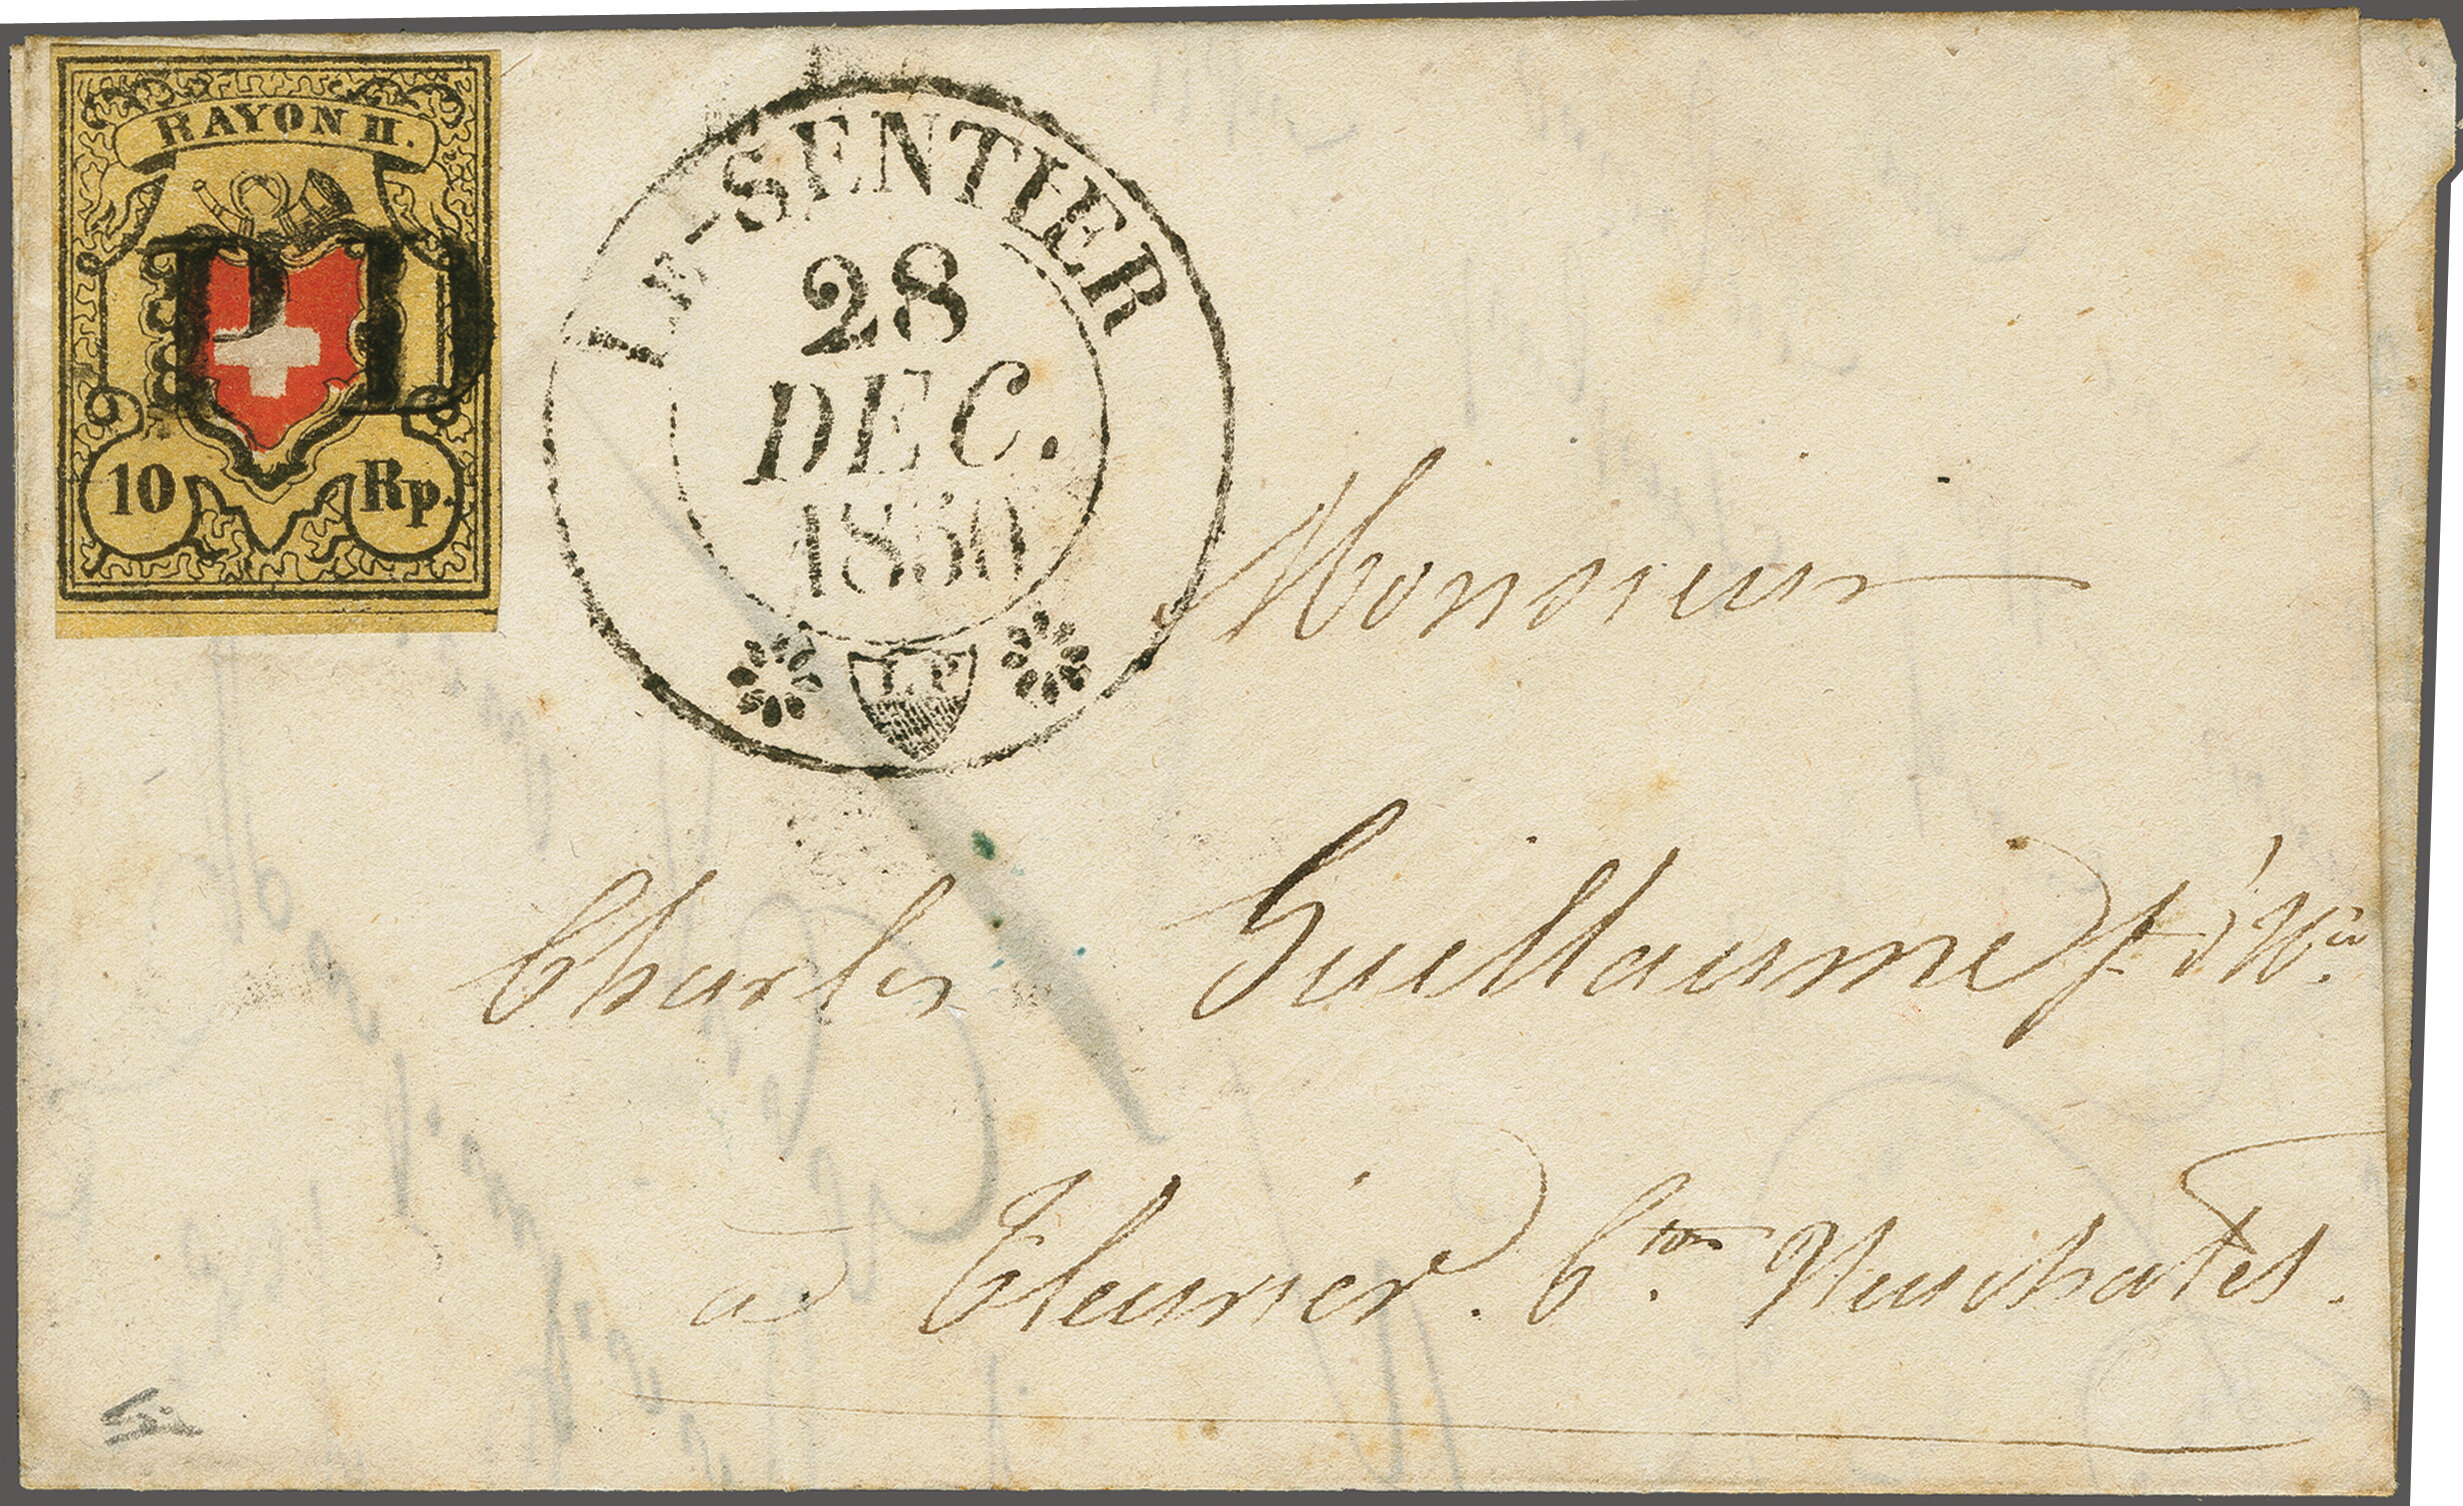 RAYON II.
PD
10 Rp.
LE-SENTIER
28
DEC.
1850
L.P.
Monsieur
Charles Guillaume
à Fleurier. C.ton Neuchatel.